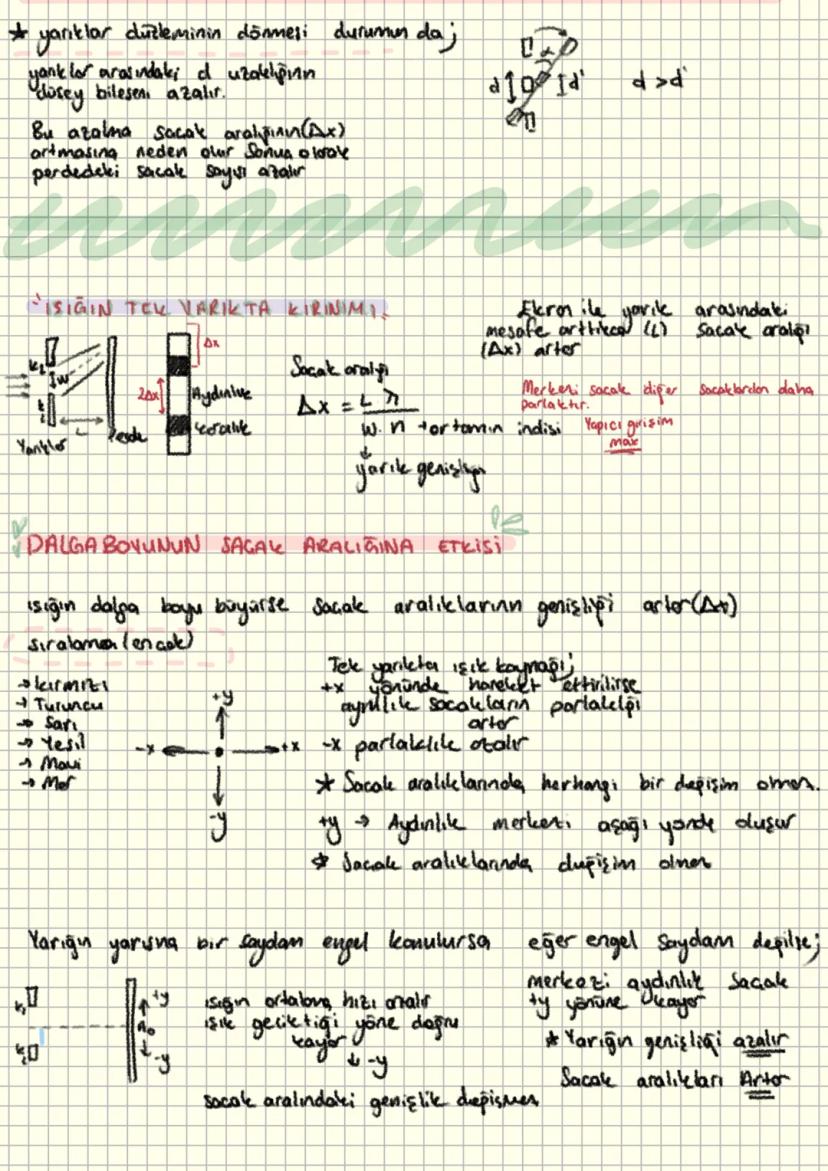 * yarıklar düzleminin dönmesi durumun da;
yarıklar arasındaki d uzaklığının
düşey bileşeni azalır.
Bu azalma sacak aralığının(Δx)
artmasına neden olur Sonuc olarak
perdedeki sacak sayısı azalır
d d' d > d'
IŞIĞIN TEK YARIKTA KIRINIMI
Ekran ile yarık arasındaki
mesafe arttıkca (L) sacak aralığı
(Δx) artar
Δx
2Δx
Aydınlık
Karanlık
w
L
Yarıklar
Perde
Sacak aralığı
Δx = L λ
w. n →ortamın indisi
yarık genişliği
Merkezi sacak diğer sacaklardan daha
parlaktır.
Yapıcı girişim
max
DALGABOYUNUN SACAK ARALIĞINA ETKİSİ
ışığın dalga boyu büyürse sacak aralıklarının genişliği artar(Δx)
sıralama(en cok)
→ kırmızı
→ Turuncu
→ Sarı
→ Yeşil
→ Mavi
→ Mor
+y
-x +x
-y
Tek yarıkta ışık kaynağı;
+x yönünde hareket ettirilirse
aydılık sacakların parlaklığı
artar
-x parlaklık azalır
* Sacak aralıklarında herhangi bir değişim olmaz.
+y → Aydınlık merkezi aşağı yönde oluşur
* Sacak aralıklarında değişim olmaz
Yarığın yarısına bir saydam engel konulursa
eğer engel saydam değilse;
merkezi aydınlık sacak
+y yönüne kayar
* Yarığın genişliği azalır
Sacak aralıkları Artar
+y
A₀
-y
ışığın ortalama hızı azalır
ışık geciktiği yöne doğru
kayar
↓ -y
sacak aralındaki genişlik değişmez